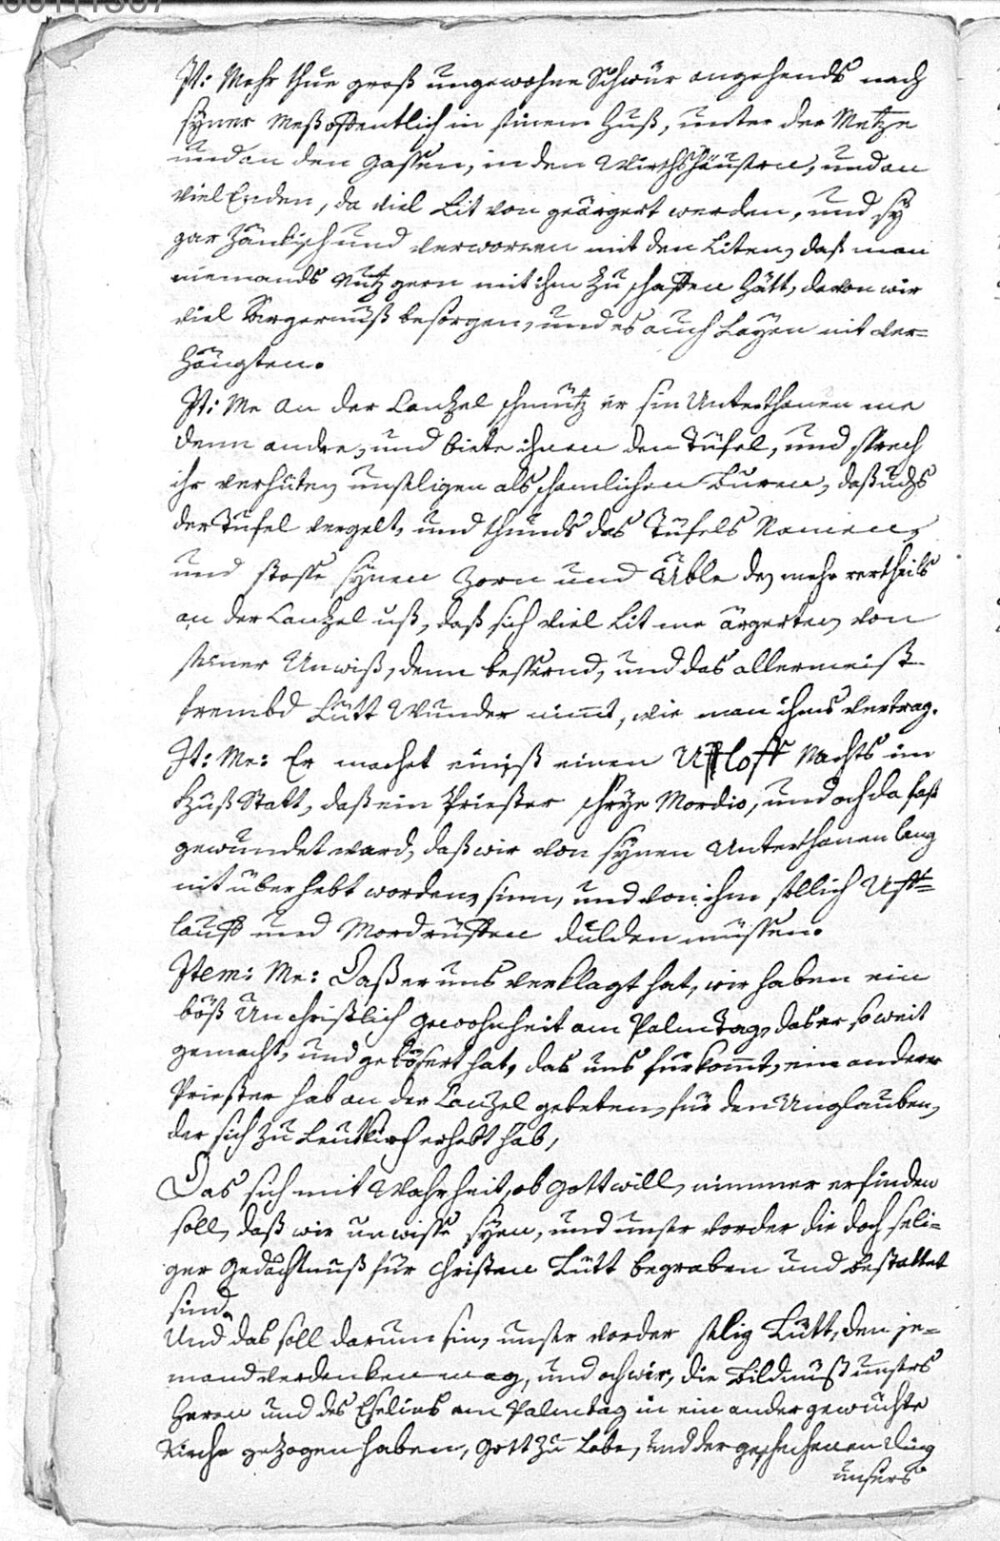 It: Mehr thue groß ungewohne Schwür angehends nach
syner Meß offentlich in sinem Huß, unter der Metze
und an den Gassen, in den Wirthshäusern, und an
viel Enden, da viel Lit von geärgert werden, und sy
gar zänkisch und verworren mit den Liten, daß man
niemands Nutz gern mit ihm zu schaffen hätt, davon wir
viel Ärgernuß besorgen, und es auch Layen nit ver=
hängten.
It: Me an der Canzel schmütz er sin Unterthonen me
denn andre, und biete ihnen den Tüfel, und sprech
ihr verhüten unseligen als schamlichen Buren, daß üchs
der Tüfel vergelt, und thünds das Tüfels Namen,
und stosse synen Zorn und Üble den mehr vertheils
an der Canzel uß, daß sich viel Lit me ärgerten von
siner Unwiß, denn bessernd, und das allermeist
frembd Lütt Wunder nimt, wie man ihms vertrag.
It: Me: Er machet einist einen Ufloff Nachts im
Huß Statt, daß ein Priester schrye Mordio, und och da fast
gewundet ward, daß wir von synen Unterthonen lang
nit überhebt worden sinn, und von ihm sollich Uff=
lauff und Mordrüffen dulden müssen.
Item: Me: Daß er uns verklagt hat, wir haben ein
böß Unchristlich gewohnheit am Palmtag, das er so weit
gemacht, und gebösert hat, das uns fürkommt, ein anderer
Priester hab an der Canzel gebeten, für den Unglauben,
der sich zu Leutkirch erhebt hab,
Das sich mit Wahrheit, ob Gott will, nimmer erfinden
soll, daß wir unwisse syen, und unser vorder die doch seli=
ger Gedächtnuß für Christen Lütt begraben und bestattet
sind.
Und das soll darum sin, unser vorder selig Lütt, den je=
mand verdenken mag, und och wir, die Bildnuß unsers
Herren und des Eselins am Palmtag in ein ander gewüchte
Kirche gezogen haben, Gott zu Lobe, und der geschechenen Ding
unsers